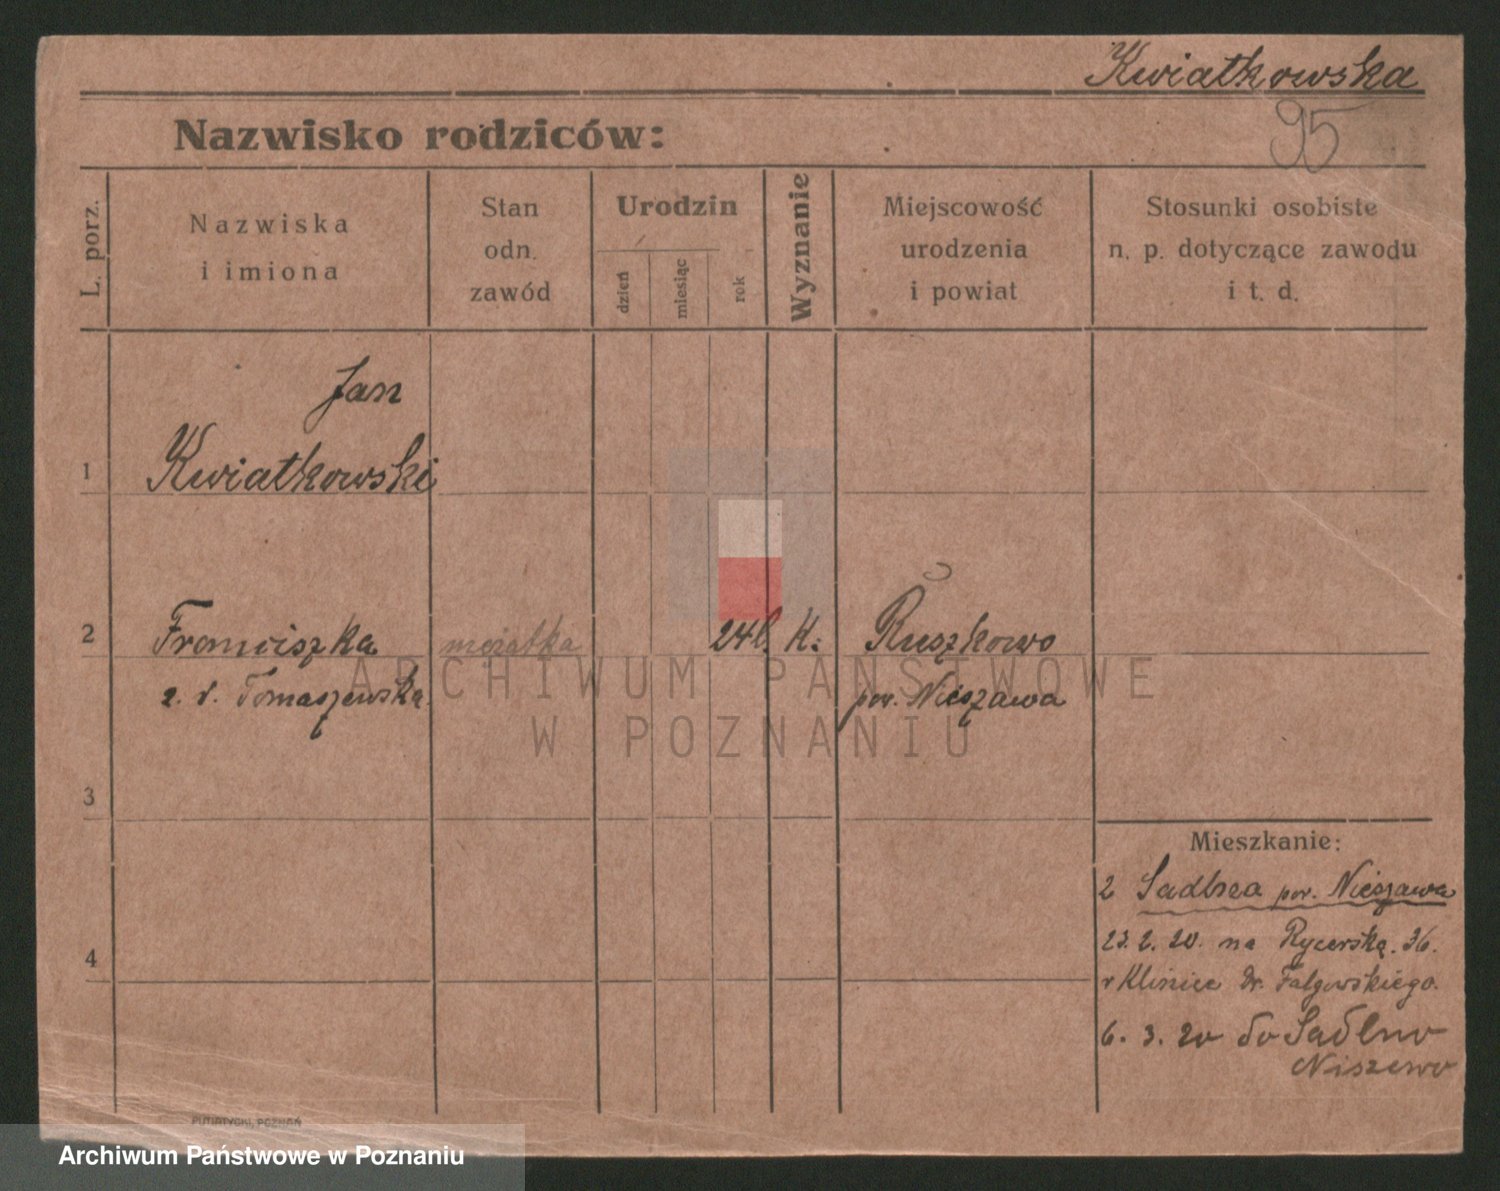 Kwiatkowska
95
Nazwisko rodziców:
L. porz.
Nazwiska
i imiona
Stan
odn.
zawód
Urodzin
dzień
miesiąc
rok
Wyznanie
Miejscowość
urodzenia
i powiat
Stosunki osobiste
n. p. dotyczące zawodu
i t. d.
Jan
1 Kwiatkowski
2 Franciszka mężatka 24 l. K. Ruszkowo
z. d. Tomaszewska pow. Nieszawa
3
Mieszkanie:
z pow. Nieszawa
23. 2. 20. na Rycerską. 36.
Klinice Dr.
4
6. 3. 20 do
PUTIATYCKI, POZNAŃ
ARCHIWUM PAŃSTWOWE
W POZNANIU
Archiwum Państwowe w Poznaniu